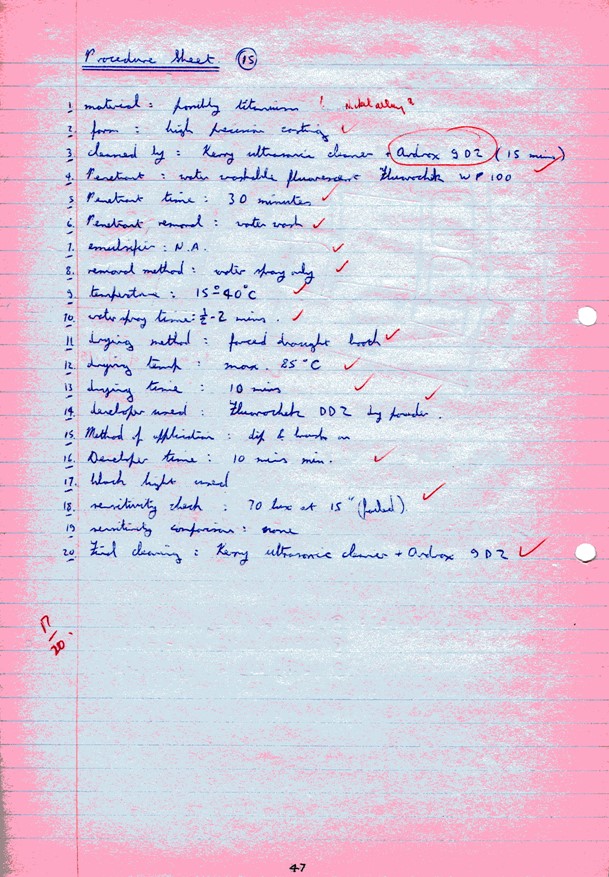 Procedure Sheet 15
1 material : possibly titanium ! Nickel alloy?
2 form : high precision casting
3 cleaned by : Kerry ultrasonic cleaner + Ardrox 9D2 (15 mins)
4. Penetrant : water washable fluorescent Fluorochek WP100
5 Penetrant time : 30 minutes
6. Penetrant removal : water wash
7. emulsifier : N.A.
8. removal method : water spray only
9. temperature : 15°-40°C
10. water spray time : ½-2 mins.
11 drying method : forced draught booth
12. drying temp : max. 85°C
13 drying time : 10 mins
14. developer used : Fluorochek DD2 dry powder.
15 Method of application : dip & brush on
16. Developer time : 10 mins min.
17. black light used
18. sensitivity check : 70 lux at 15" (failed).
19 sensitivity comparison : none
20 Final cleaning : Kerry ultrasonic cleaner + Ardrox 9D2
17/20.
47